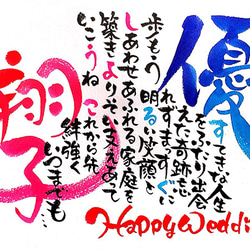 優
すてきな人生
をふたり出会
えた奇跡忘
れずまっすぐに
歩もう明るい笑顔と
しあわせあふれる家庭を
築きよりそい支えあって
いこうねこれから先
絆強く
いつまでも…
翔子
Happy Weddi